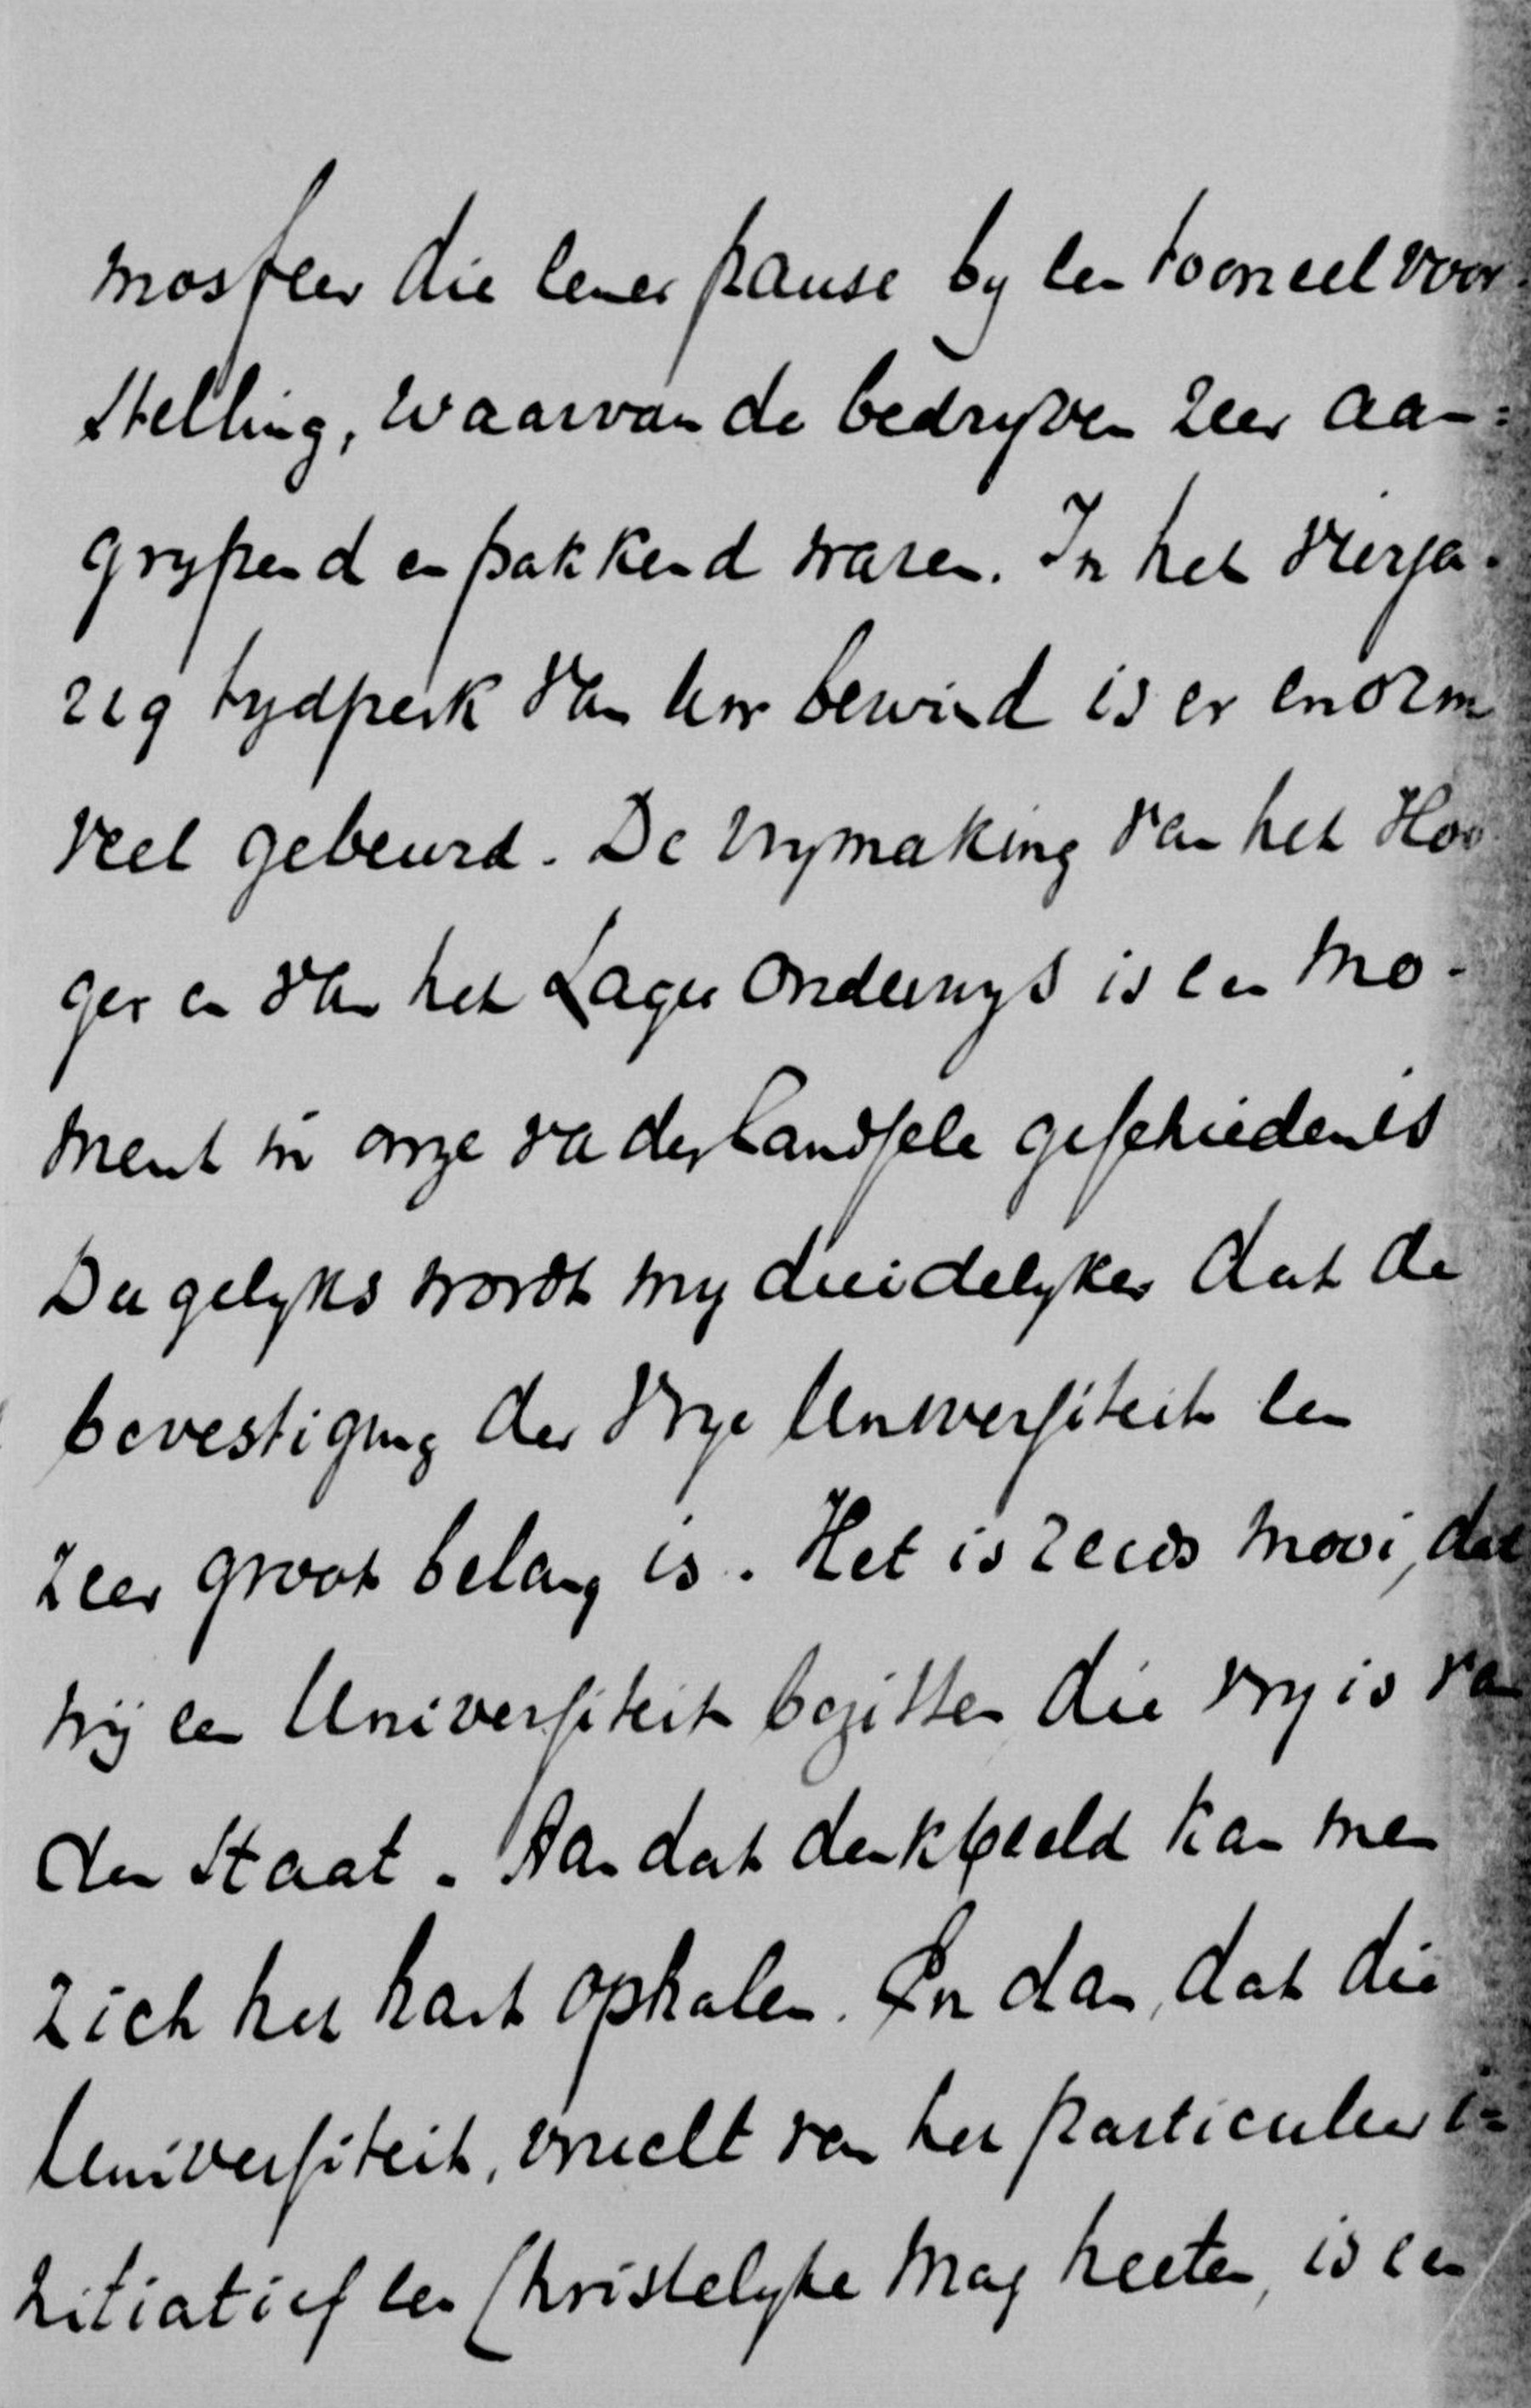 mosfeer die eener pauze by een tooneelvoor-
stelling, waarvan de bedryven zeer aan-
grypend en pakkend waren. In het vierja-
rig tydperk van Uw bewind is er enorm
veel gebeurd. De vrymaking van het Hoo
ger en van het Lager Onderwys is een mo-
ment in onze vaderlandsche geschiedenis
Dagelyks wordt my duidelyker dat de
bevestiging der Vrye Universiteit een
zeer groot belang is. Het is reeds mooi, dat
wij een Universiteit bezitten die vry is van
den Staat. Aan dat denkbeeld kan men
zich het hart ophalen. En dan, dat die
Universiteit, vrucht van het particulier i-
nitiatief een Christelyke mag heeten, is een